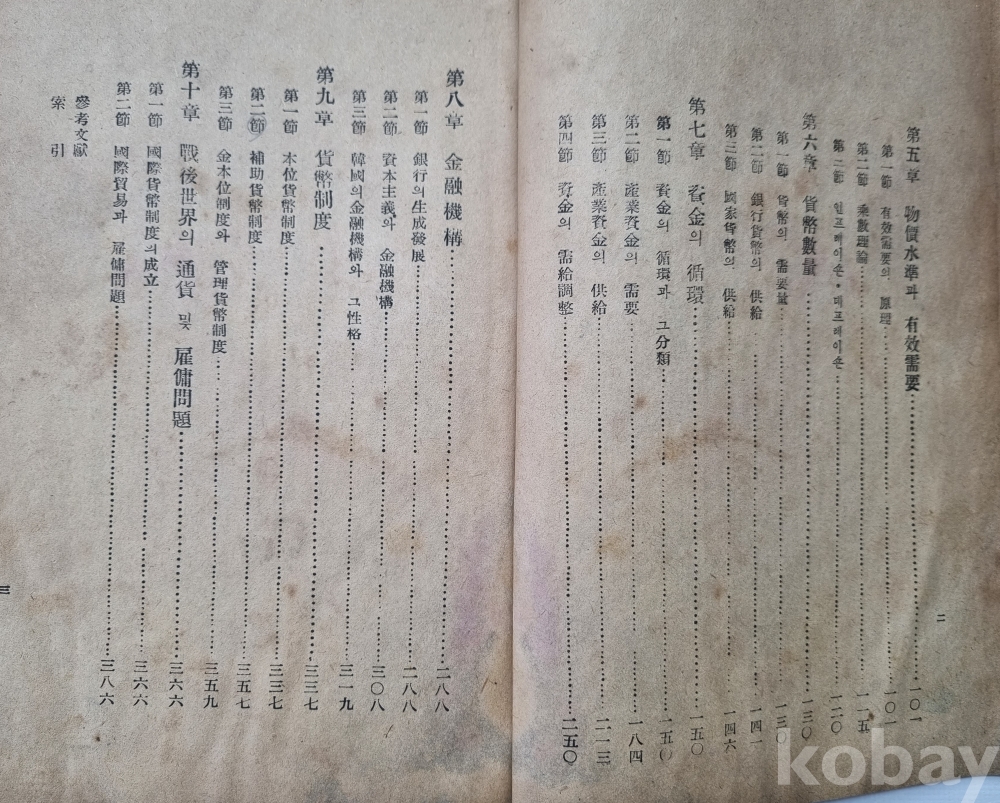 二
第五章 物價水準과 有效需要 一〇一
第一節 有效需要의 原理 一〇一
第二節 乘數理論 一一五
第三節 인프레이숀・데프레이숀 一二〇
第六章 貨幣數量 一三〇
第一節 貨幣의 需要量 一三〇
第二節 銀行貨幣의 供給 一四一
第三節 國家貨幣의 供給 一四六
第七章 資金의 循環 一五〇
第一節 資金의 循環과 그 分類 一五〇
第二節 產業資金의 需要 一八四
第三節 產業資金의 供給 二一三
第四節 資金의 需給調整 二五〇
第八章 金融機構 二八八
第一節 銀行의 生成發展 二八八
第二節 資本主義와 金融機構 三〇八
第三節 韓國의 金融機構와 그 性格 三一九
第九章 貨幣制度 三三七
第一節 本位貨幣制度 三三七
第二節 補助貨幣制度 三五七
第三節 金本位制度와 管理貨幣制度 三五九
第十章 戰後世界의 通貨 및 雇傭問題 三六六
第一節 國際貨幣制度의 成立 三六六
第二節 國際貿易과 雇傭問題 三八六
參考文獻
索引
三
kobay